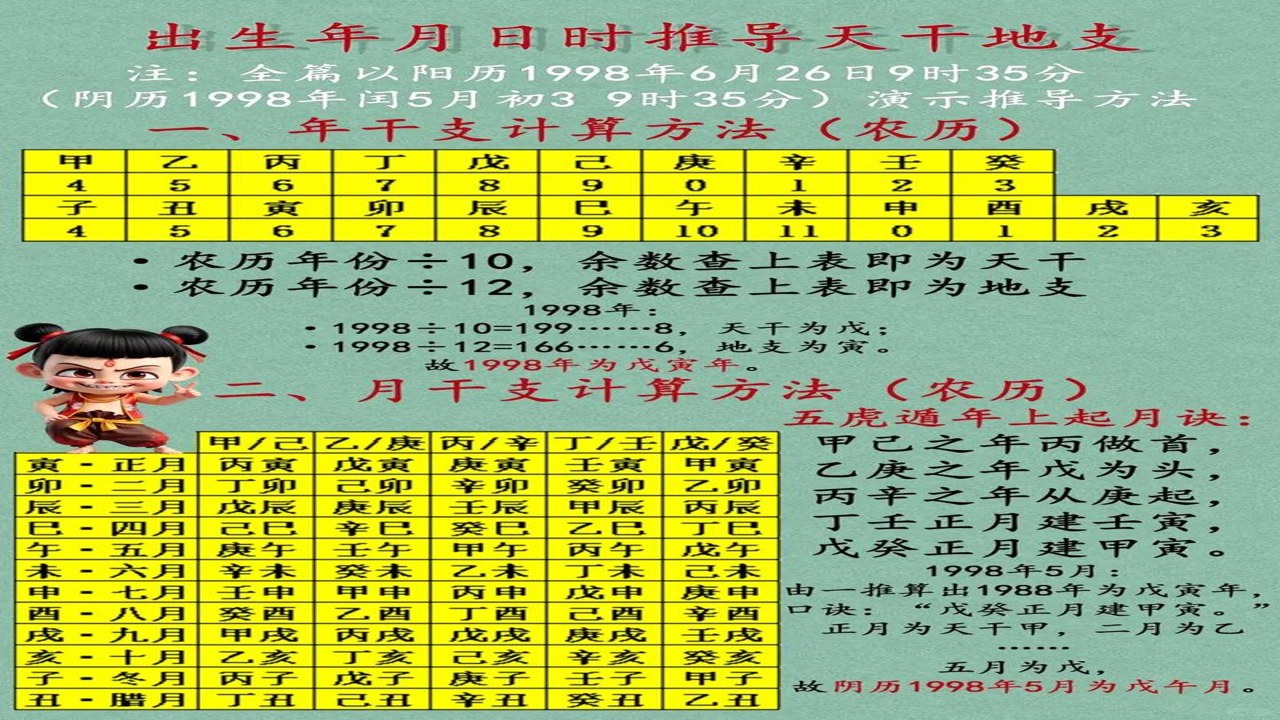 出生年月日时推导天干地支
注：全篇以阳历1998年6月26日9时35分
（阴历1998年闰5月初3 9时35分）演示推导方法
一、年干支计算方法（农历）
甲 乙 丙 丁 戊 己 庚 辛 壬 癸
4 5 6 7 8 9 0 1 2 3
子 丑 寅 卯 辰 巳 午 未 申 酉 戌 亥
4 5 6 7 8 9 10 11 0 1 2 3
·农历年份÷10，余数查上表即为天干
·农历年份÷12，余数查上表即为地支
1998年：
·1998÷10=199……8，天干为戊；
·1998÷12=166……6，地支为寅。
故1998年为戊寅年。
二、月干支计算方法（农历）
甲/己 乙/庚 丙/辛 丁/壬 戊/癸
寅·正月 丙寅 戊寅 庚寅 壬寅 甲寅
卯·二月 丁卯 己卯 辛卯 癸卯 乙卯
辰·三月 戊辰 庚辰 壬辰 甲辰 丙辰
巳·四月 己巳 辛巳 癸巳 乙巳 丁巳
午·五月 庚午 壬午 甲午 丙午 戊午
未·六月 辛未 癸未 乙未 丁未 己未
申·七月 壬申 甲申 丙申 戊申 庚申
酉·八月 癸酉 乙酉 丁酉 己酉 辛酉
戌·九月 甲戌 丙戌 戊戌 庚戌 壬戌
亥·十月 乙亥 丁亥 己亥 辛亥 癸亥
子·冬月 丙子 戊子 庚子 壬子 甲子
丑·腊月 丁丑 己丑 辛丑 癸丑 乙丑
五虎遁年上起月诀：
甲己之年丙做首，
乙庚之年戊为头，
丙辛之年从庚起，
丁壬正月建壬寅，
戊癸正月建甲寅。
1998年5月：
由一推算出1988年为戊寅年，
口诀：“戊癸正月建甲寅。”
正月为天干甲，二月为乙
……
五月为戊，
故阴历1998年5月为戊午月。